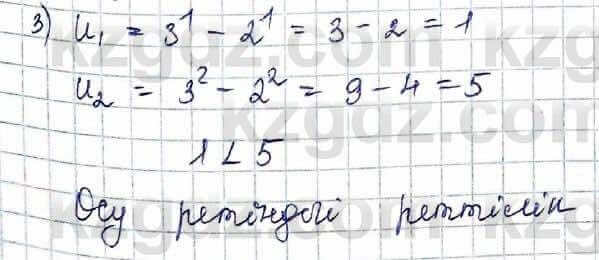 3) U₁ = 3¹ - 2¹ = 3 - 2 = 1
U₂ = 3² - 2² = 9 - 4 = 5
1 < 5
Өсу ретіндегі реттілік
kzgdz.com